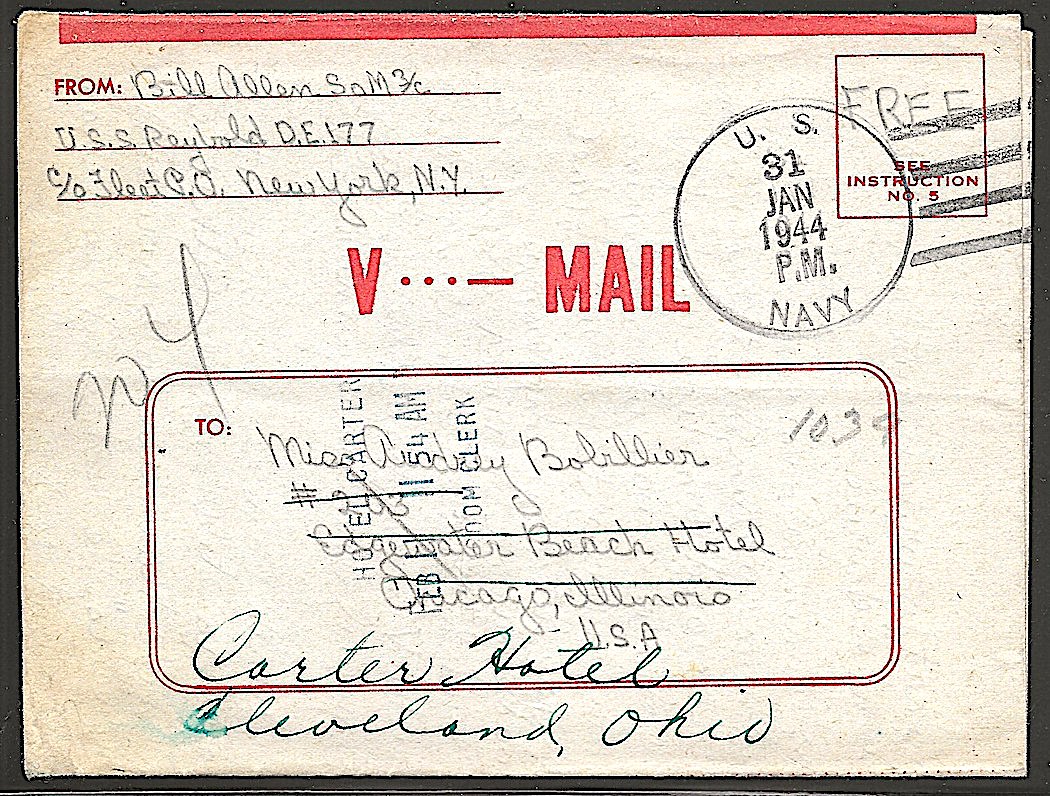 FROM: Bill Allen SoM 3/c
U.S.S. Reybold D.E. 177
c/o Fleet P.O. New York, N.Y.
FREE
SEE
INSTRUCTION
NO. 5
U. S.
31
JAN
1944
P.M.
NAVY
V ...— MAIL
NY
TO:
Miss Audrey Bobillier
#
Edgewater Beach Hotel
Chicago, Illinois
U.S.A
1034
HOTEL CARTER
FEB 11 54 AM
ROOM CLERK
Carter Hotel
Cleveland, Ohio